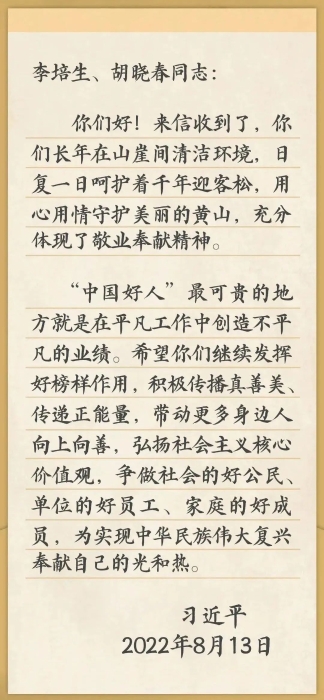 李培生、胡晓春同志：
你们好！来信收到了，你
们长年在山崖间清洁环境，日
复一日呵护着千年迎客松，用
心用情守护美丽的黄山，充分
体现了敬业奉献精神。
“中国好人”最可贵的地
方就是在平凡工作中创造不平
凡的业绩。希望你们继续发挥
好榜样作用，积极传播真善美、
传递正能量，带动更多身边人
向上向善，弘扬社会主义核心
价值观，争做社会的好公民、
单位的好员工、家庭的好成
员，为实现中华民族伟大复兴
奉献自己的光和热。
习近平
2022年8月13日